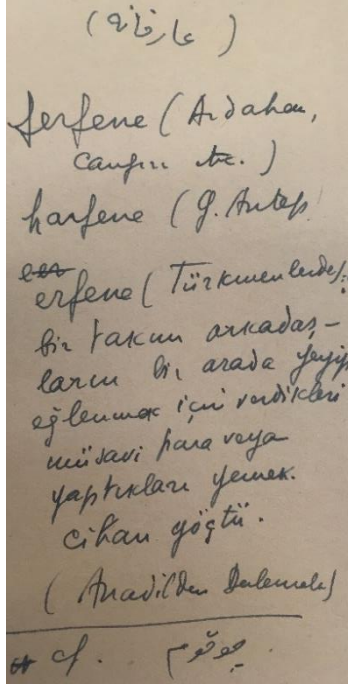 (عارفانه)
ferfene (Ardahan,
Çankırı etc.)
harfene (G. Antep
erfene (Türkmenlerde):
bir takım arkadaş-
ların bir arada yeyip
eğlenmek için verdikleri
müsavi para veya
yaptıkları yemek.
cihan göçtü.
(Anadilden Derlemeler)
cf.